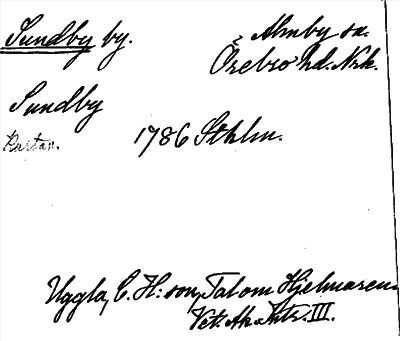 Sundby by. Almby sn.
Örebro hd. Nrk.
Sundby
Kartan. 1786 Sthlm.
Uggla, C. H:son, Tal om Hjelmaren
Vet. Ak. Hdr. III.